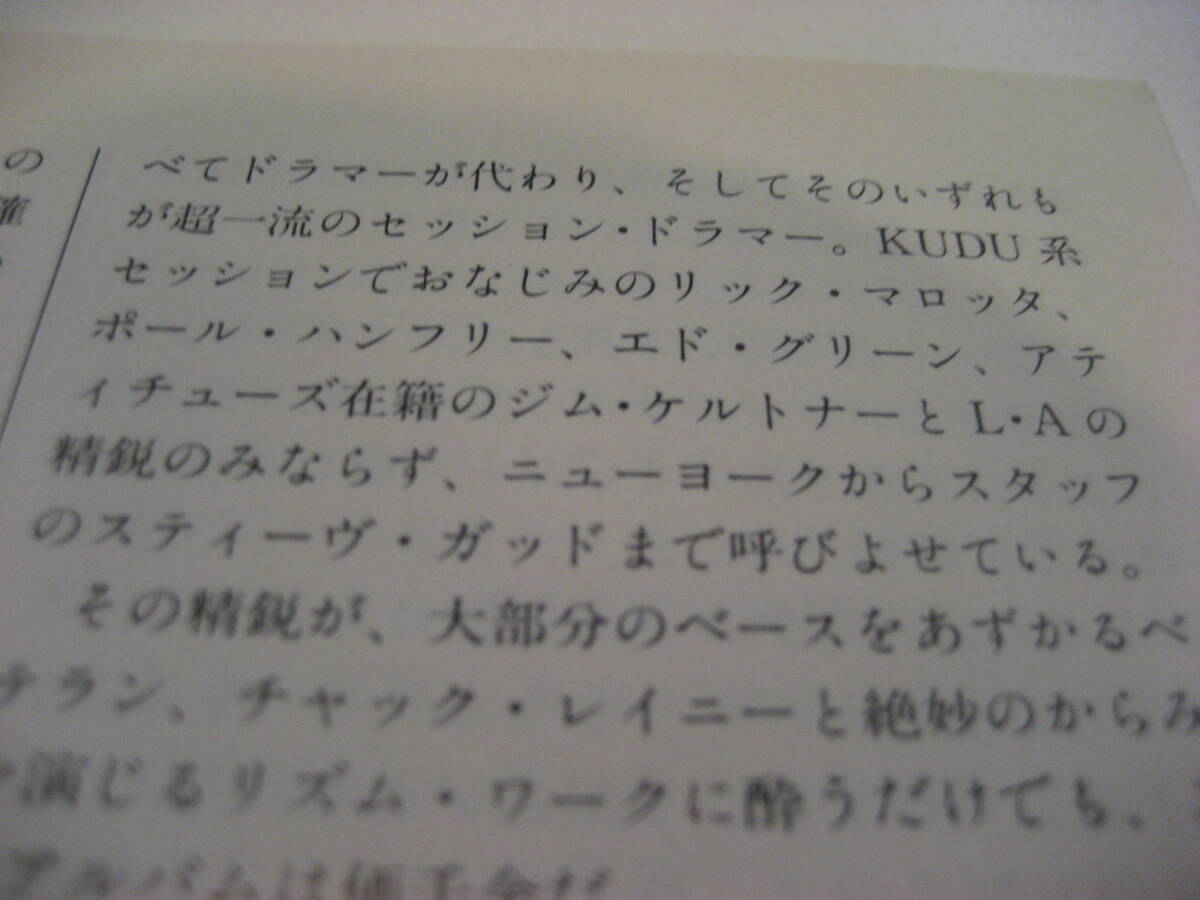 べてドラマーが代わり、そしてそのいずれも
が超一流のセッション・ドラマー。KUDU系
セッションでおなじみのリック・マロッタ、
ポール・ハンフリー、エド・グリーン、アテ
ィチューズ在籍のジム・ケルトナーとL・Aの
精鋭のみならず、ニューヨークからスタッフ
のスティーヴ・ガッドまで呼びよせている。
その精鋭が、大部分のベースをあずかるベ
テラン、チャック・レイニーと絶妙のからみ
演じるリズム・ワークに酔うだけでも、
アルバムは価千金だ
の
確